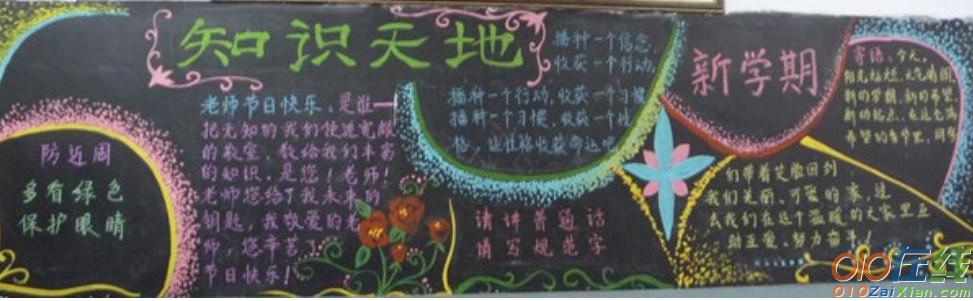 知识天地
防近周
多看绿色
保护眼睛
老师节日快乐：是谁一
把无知的我们领进宽敞
的教室，教给我们丰富
的知识，是您！老师！
老师您给了我未来的
钥匙，我敬爱的老
师，您辛苦了，
节日快乐！
播种一个信念，
收获一个行动，
播种一个行动，收获一个习惯
播种一个习惯，收获一个性
格，让性格收获命运吧
请讲普通话
请写规范字
新学期
寄语：今天，
阳光灿烂，天气晴朗
新的学期，新的希望，
新的起点，在这充满
希望的春节里，同学
们带着笑脸回到
我们美丽、可爱的家，过
去我们在这个温暖的大家里互
助互爱、努力奋斗！
010在线
010ZaiXian.com